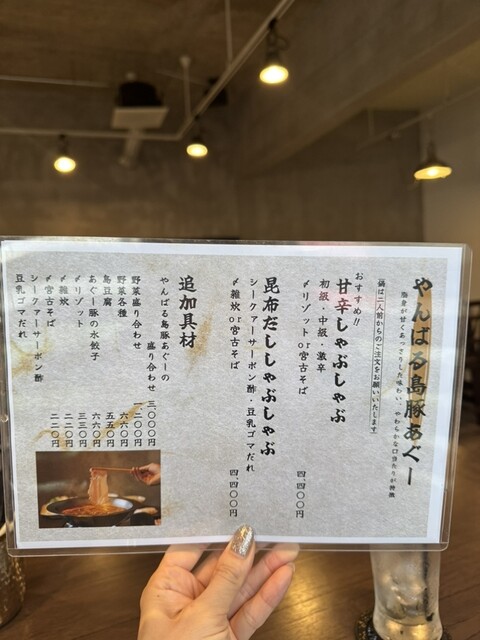 やんばる島豚あぐー
脂身が甘くあっさりした味わい、やわらかな口当たりが特徴
鍋は二人前からのご注文をお願いいたします
おすすめ!!
甘辛しゃぶしゃぶ
初級・中級・激辛
〆リゾットor宮古そば
四、四〇〇円
昆布だししゃぶしゃぶ
シークァーサーポン酢・豆乳ゴマだれ
〆雑炊or宮古そば
四、四〇〇円
追加具材
やんばる島豚あぐーの
盛り合わせ 三〇〇〇円
野菜盛り合わせ 一二〇〇円
野菜各種 六六〇円
島豆腐 五五〇円
あぐー豚の水餃子 六六〇円
〆リゾット 三三〇円
〆雑炊 二二〇円
〆宮古そば 二二〇円
シークァーサーポン酢
豆乳ゴマだれ